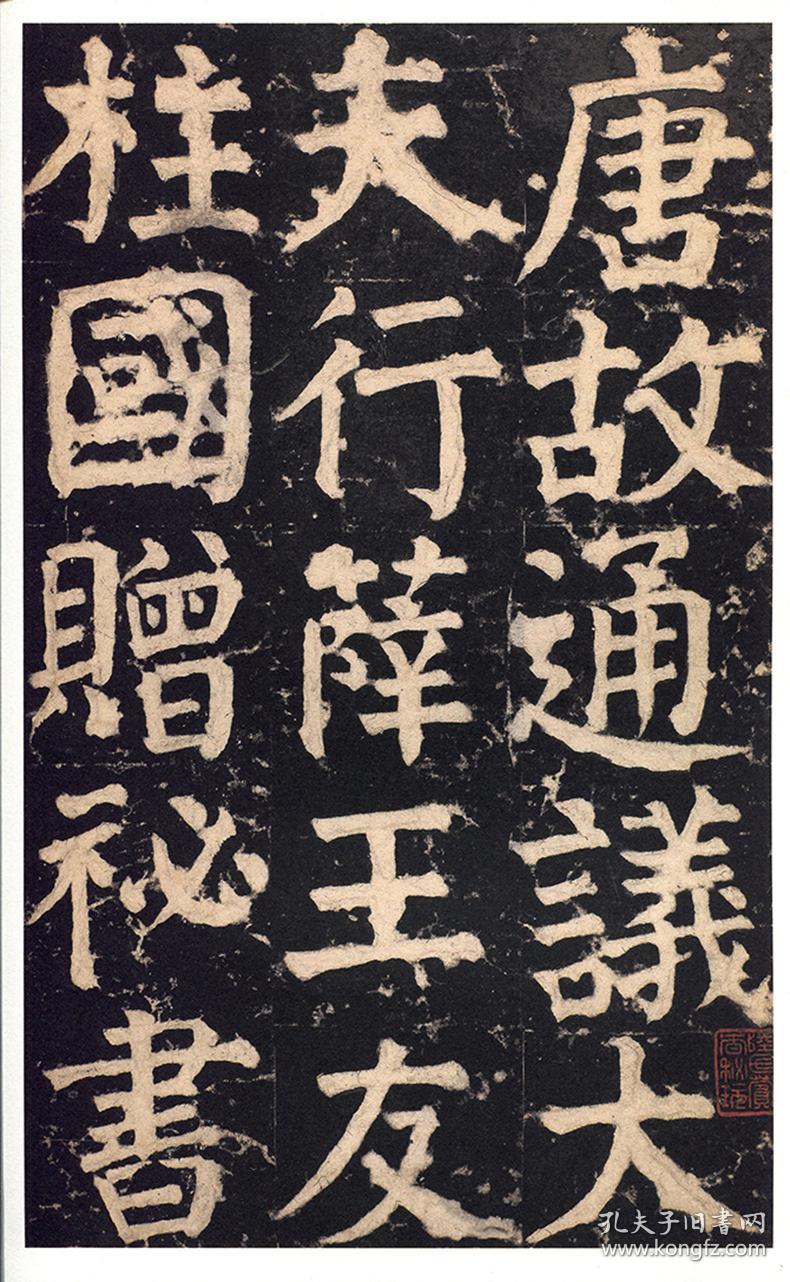 唐故通議大
夫行薛王友
柱國贈祕書
孔夫子旧書网
www.kongfz.com